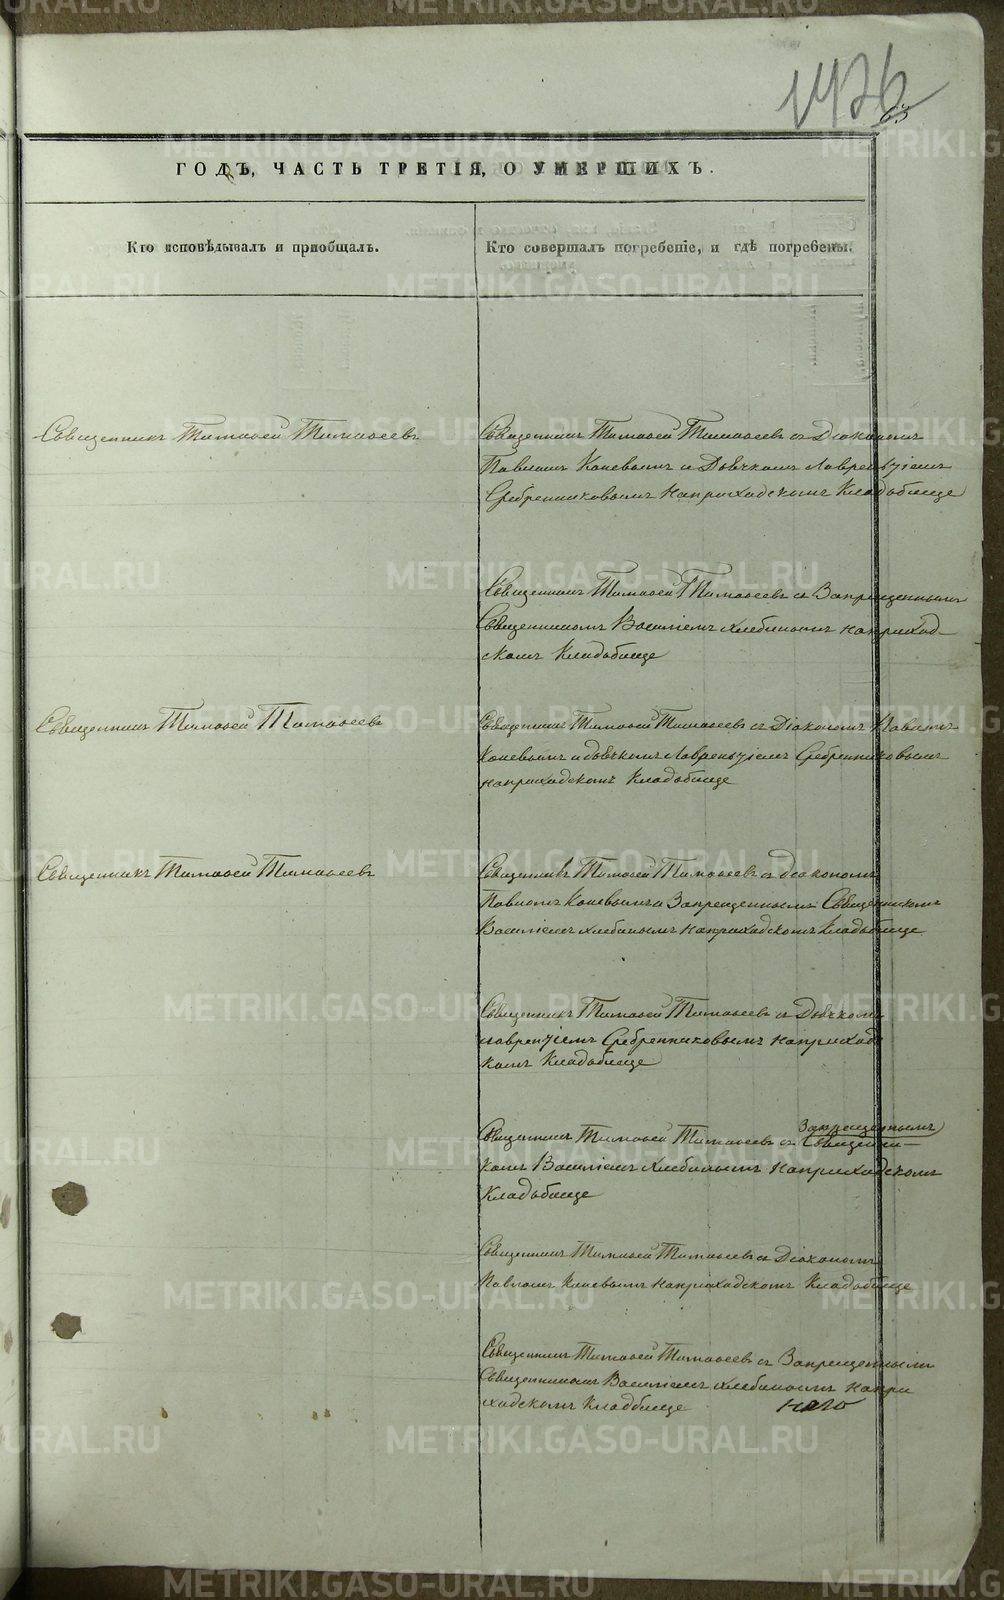 1426
63
ГОДЪ, ЧАСТЬ ТРЕТІЯ, О УМЕРШИХЪ.
Кто исповѣдывалъ и пріобщалъ.
Кто совершалъ погребеніе, и гдѣ погребены.
Священникъ Тимофей Тимофеевъ
Священникъ Тимофей Тимофеевъ съ Діакономъ
Павломъ Коневымъ и Дьячкомъ Лаврентіемъ
Сребренниковымъ наприходскомъ Кладбище
Священникъ Тимофей Тимофеевъ съ Запрещеннымъ
Священникомъ Василіемъ Хлебинымъ наприход-
скомъ Кладбище
Священникъ Тимофей Тимофеевъ
Священникъ Тимофей Тимофеевъ съ Діакономъ Павломъ
Коневымъ и дьячкомъ Лаврентіемъ Сребренниковымъ
наприходскомъ Кладбище
Священникъ Тимофей Тимофеевъ
Священникъ Тимофей Тимофеевъ съ діакономъ
Павломъ Коневымъ и Запрещеннымъ Священникомъ
Василіемъ Хлебинымъ наприходскомъ Кладбище
Священникъ Тимофей Тимофеевъ съ Дьячкомъ
Лаврентіемъ Сребренниковымъ наприход
комъ Кладбище
Запрещеннымъ
Священникъ Тимофей Тимофеевъ съ Священни-
комъ Василіемъ Хлебинымъ наприходскомъ
Кладбище
Священникъ Тимофей Тимофеевъ съ Діакономъ
Павломъ Коневымъ наприходскомъ Кладбище
Священникъ Тимофей Тимофеевъ съ Запрещеннымъ
Священникомъ Василіемъ Хлебинымъ напри
ходскомъ Кладбище
METRIKI.GASO-URAL.RU